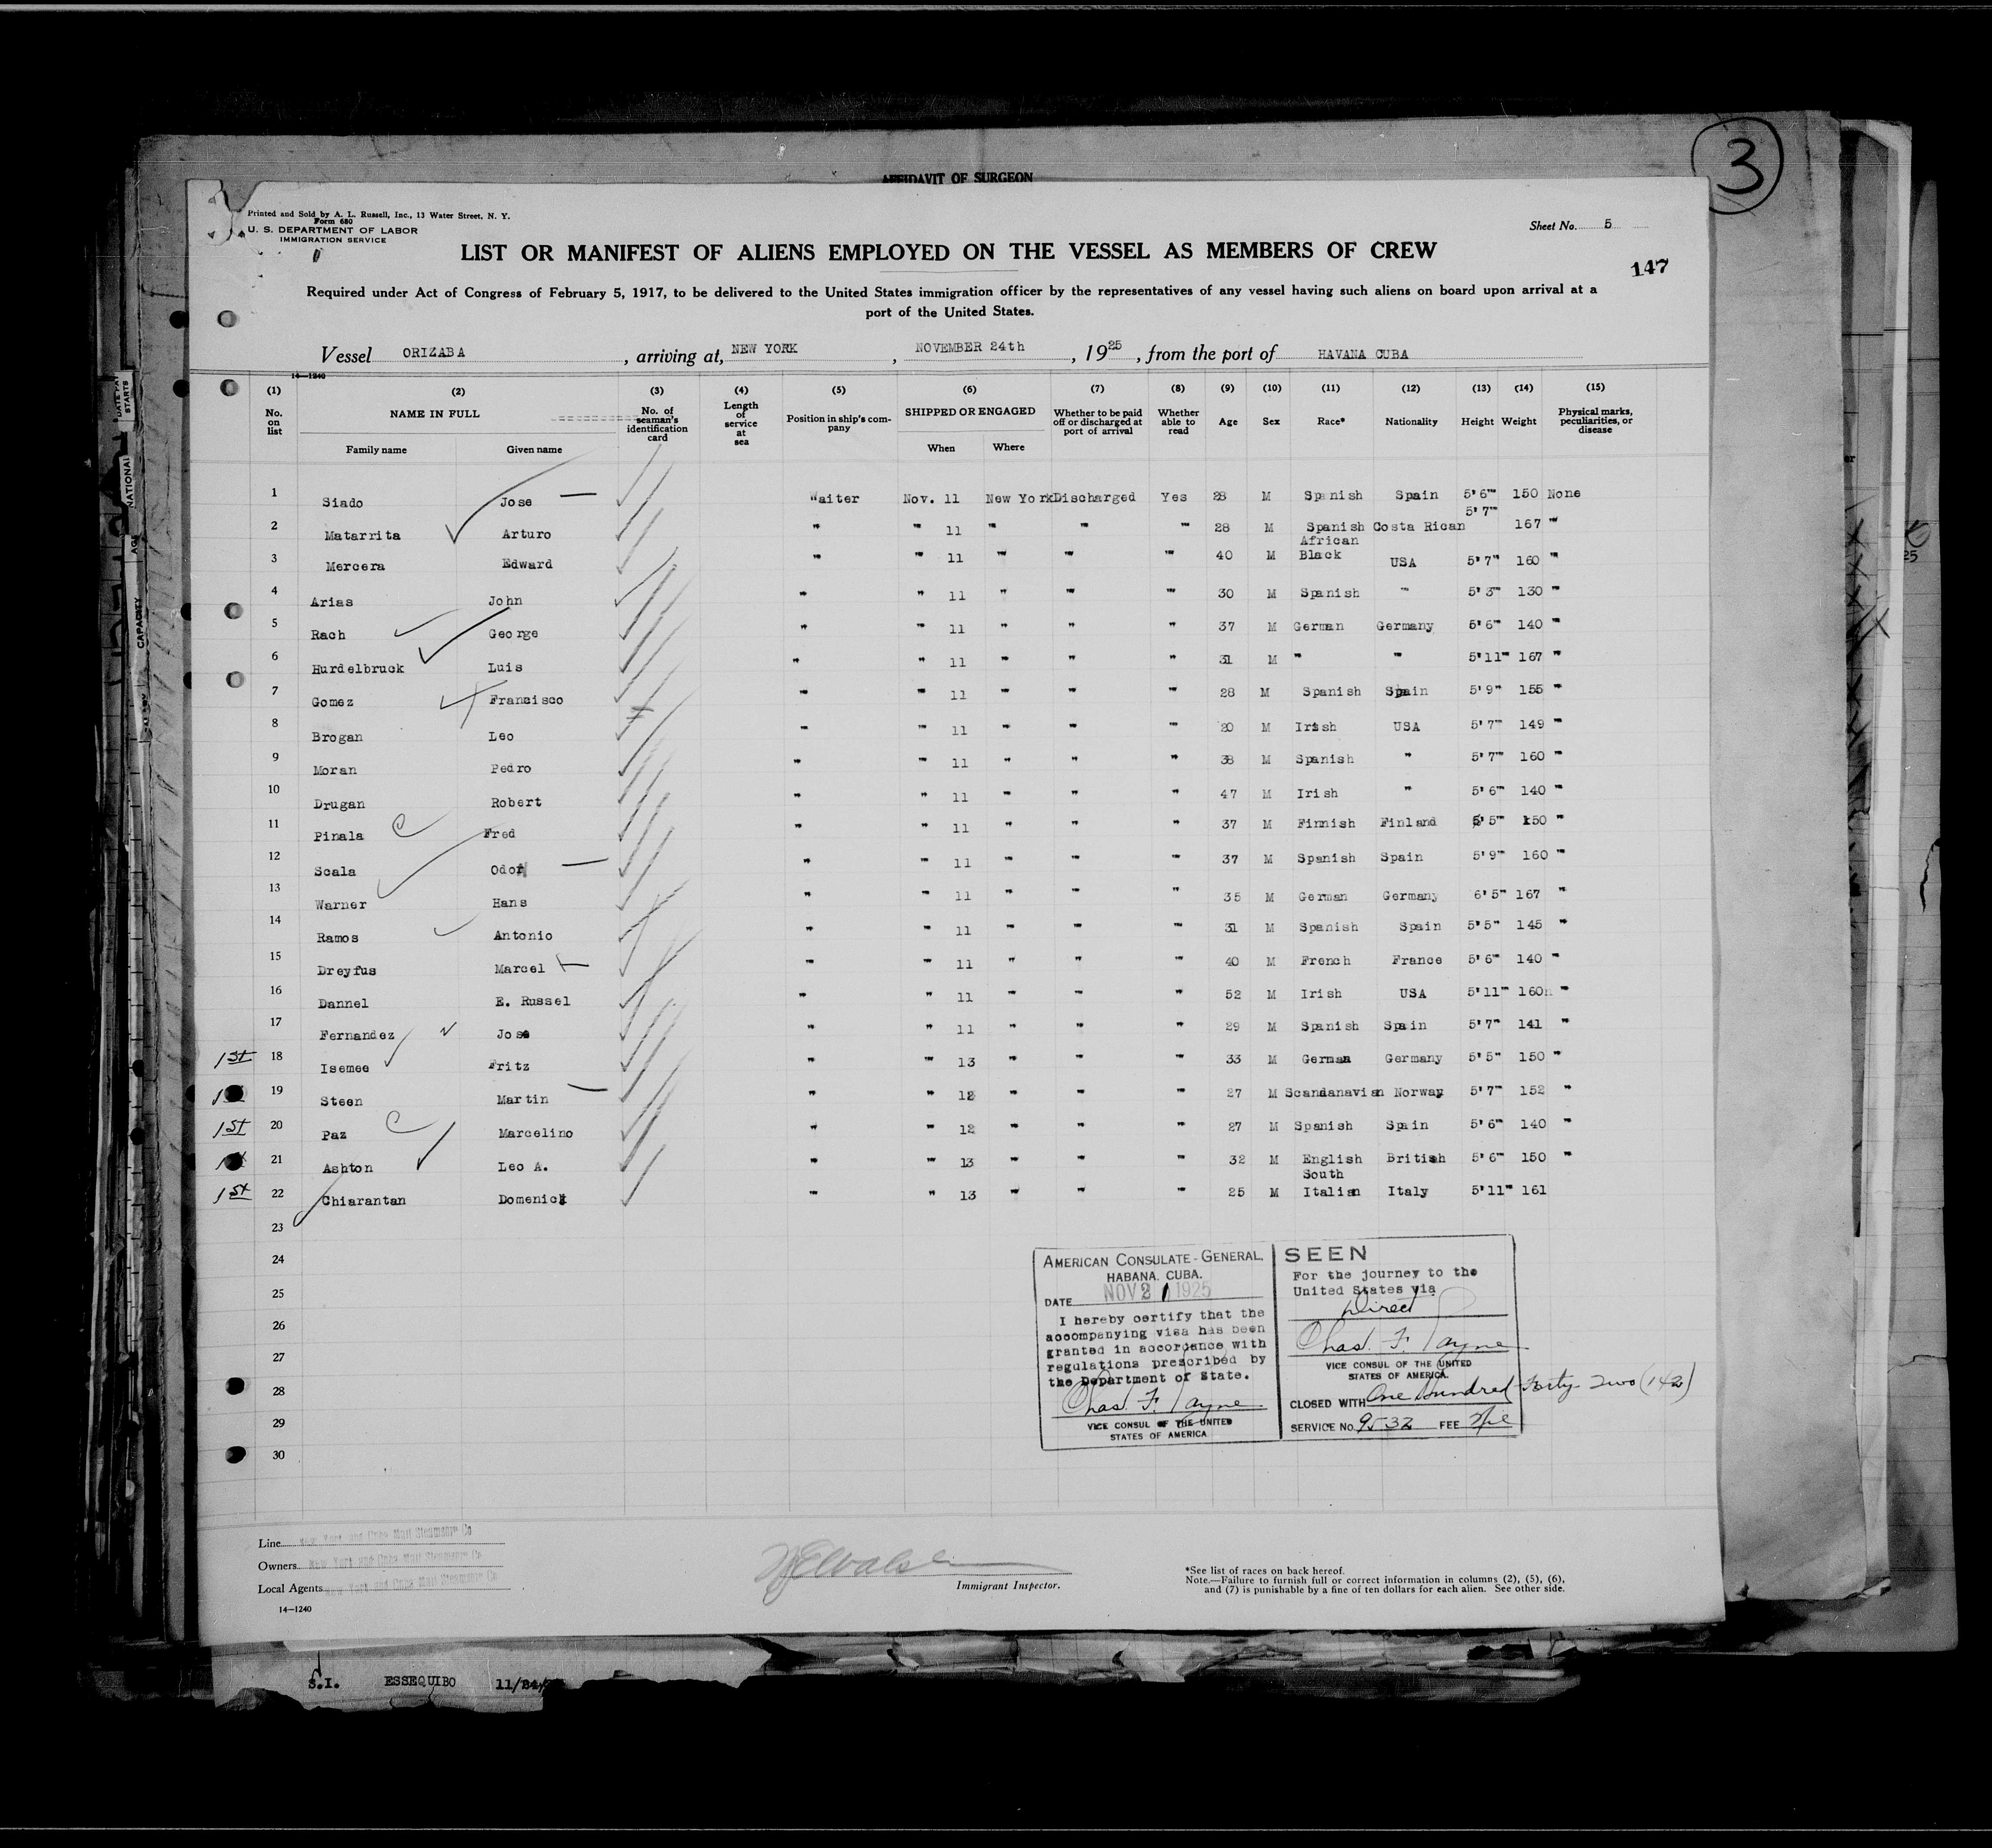 3
AFFIDAVIT OF SURGEON
Printed and Sold by A. L. Russell, Inc., 13 Water Street, N. Y.
Form 680
U. S. DEPARTMENT OF LABOR
IMMIGRATION SERVICE
Sheet No. 5
LIST OR MANIFEST OF ALIENS EMPLOYED ON THE VESSEL AS MEMBERS OF CREW
147
Required under Act of Congress of February 5, 1917, to be delivered to the United States immigration officer by the representatives of any vessel having such aliens on board upon arrival at a
port of the United States.
Vessel ORIZABA, arriving at, NEW YORK, NOVEMBER 24th, 1925, from the port of HAVANA CUBA
14—1240
(1) (2) (3) (4) (5) (6) (7) (8) (9) (10) (11) (12) (13) (14) (15)
No. on list NAME IN FULL No. of seaman's identification card Length of service at sea Position in ship's company SHIPPED OR ENGAGED Whether to be paid off or discharged at port of arrival Whether able to read Age Sex Race* Nationality Height Weight Physical marks, peculiarities, or disease
Family name Given name When Where
1 Siado Jose Waiter Nov. 11 New York Discharged Yes 28 M Spanish Spain 5'6" 150 None
2 Matarrita Arturo " " 11 " " " 28 M Spanish Costa Rican 5'7" 167 "
3 Mercera Edward " " 11 " " " 40 M African Black USA 5'7" 160 "
4 Arias John " " 11 " " " 30 M Spanish " 5'3" 130 "
5 Rach George " " 11 " " " 37 M German Germany 5'6" 140 "
6 Hurdelbruck Luis " " 11 " " " 31 M " " 5'11" 167 "
7 Gomez Francisco " " 11 " " " 28 M Spanish Spain 5'9" 155 "
8 Brogan Leo " " 11 " " " 20 M Irish USA 5'7" 149 "
9 Moran Pedro " " 11 " " " 38 M Spanish " 5'7" 160 "
10 Drugan Robert " " 11 " " " 47 M Irish " 5'6" 140 "
11 Pinala Fred " " 11 " " " 37 M Finnish Finland 5'5" 150 "
12 Scala Odon " " 11 " " " 37 M Spanish Spain 5'9" 160 "
13 Warner Hans " " 11 " " " 35 M German Germany 6'5" 167 "
14 Ramos Antonio " " 11 " " " 31 M Spanish Spain 5'5" 145 "
15 Dreyfus Marcel " " 11 " " " 40 M French France 5'6" 140 "
16 Dannel E. Russel " " 11 " " " 52 M Irish USA 5'11" 160 "
17 Fernandez Jose " " 11 " " " 29 M Spanish Spain 5'7" 141 "
1st 18 Isemee Fritz " " 13 " " " 33 M German Germany 5'5" 150 "
19 Steen Martin " " 12 " " " 27 M Scandanavian Norway 5'7" 152 "
1st 20 Paz Marcelino " " 12 " " " 27 M Spanish Spain 5'6" 140 "
21 Ashton Leo A. " " 13 " " " 32 M English British 5'6" 150 "
1st 22 Chiarantan Domenick " " 13 " " " 25 M South Italian Italy 5'11" 161
23
24
25
26
27
28
29
30
AMERICAN CONSULATE-GENERAL
HABANA. CUBA.
DATE NOV 21 1925
I hereby certify that the
accompanying visa has been
granted in accordance with
regulations prescribed by
the Department of State.
Chas. F. Payne
VICE CONSUL OF THE UNITED
STATES OF AMERICA
SEEN
For the journey to the
United States via
Direct
Chas. F. Payne
VICE CONSUL OF THE UNITED
STATES OF AMERICA.
CLOSED WITH One Hundred Forty Two (142)
SERVICE No. 9532 FEE Nil
Line New York and Cuba Mail Steamship Co
Owners New York and Cuba Mail Steamship Co
Local Agents New York and Cuba Mail Steamship Co
Immigrant Inspector.
*See list of races on back hereof.
Note.—Failure to furnish full or correct information in columns (2), (5), (6),
and (7) is punishable by a fine of ten dollars for each alien. See other side.
14—1240
S.I. ESSEQUIBO 11/24/